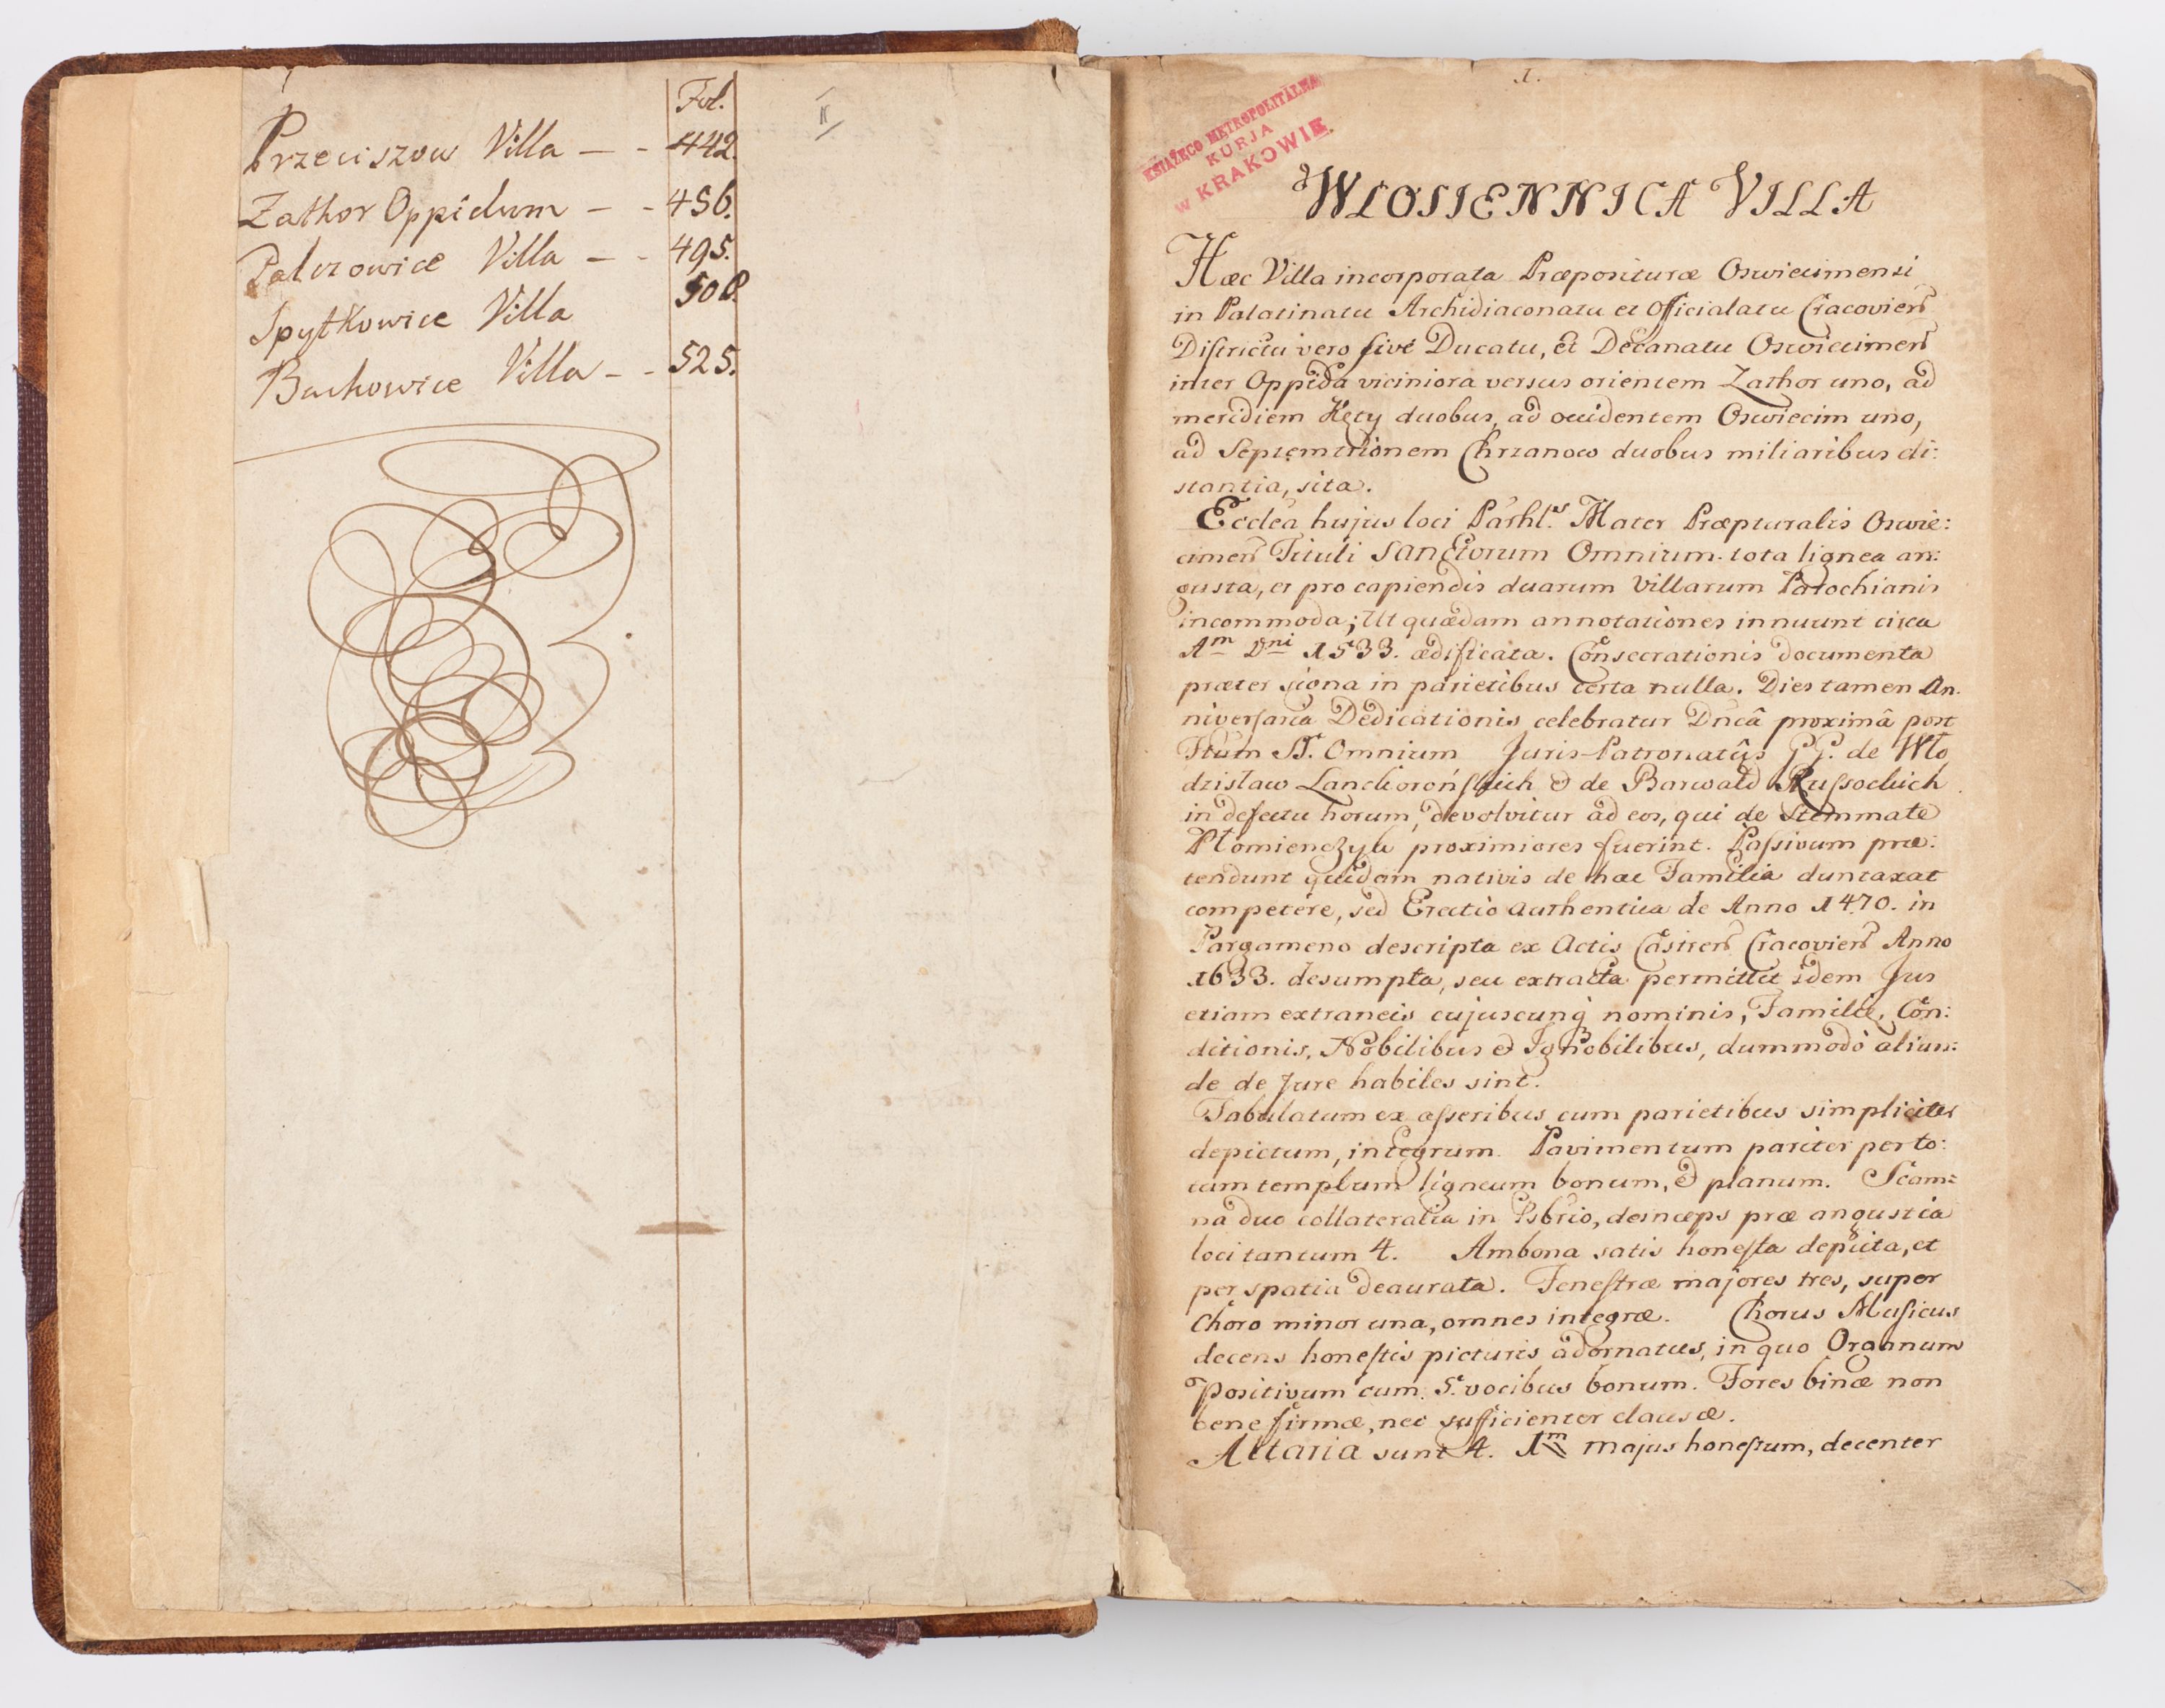 Fol.
Przeciszow Villa — - 442.
Zathor Oppidum - - 456.
Palczowice Villa - - 495.
Spytkowice Villa 508.
Bachowice Villa - - 525.
II
1.
KSIĄŻĘCO METROPOLITALNA
KURJA
w KRAKOWIE.
WŁOSIENNICA VILLA
Hæc Villa incorporata Præposituræ Oswiecimensi
in Palatinatu Archidiaconatu et Officialatu Cracovień
Diſtrictu vero ſive Ducatu, et Decanatu Oswiecimeń
inter Oppida viciniora versus orientem Zathor uno, ad
meridiem Kęty duobus, ad occidentem Oswiecim uno,
ad Septemtrionem Chrzanow duobus miliaribus di:
stantia, sita.
Ecclea hujus loci Parhl.s Mater Præpturalis Oswie:
cimeń Tituli SANCtorum Omnium tota lignea an:
gusta, et pro capiendis duarum Villarum Parochianis
incommoda; Ut quædam annotationes innuunt circa
Am Dni 1533. ædificata. Consecrationis documenta
præter signa in parietibus certa nulla. Dies tamen An:
niverſaria Dedicationis celebratur Dncâ proximâ post
Ftum SS. Omnium Juris-Patronatûs GG. de Wło
dzisław Lanckorońſkich & de Barwałd Ruſsockich
in defectu horum, devolvitur ad eos, qui de Stemmate
Płomienczyk proximiores fuerint. Paſsivum præ:
tendunt quidam nativis de hac Familia duntaxat
competere, sed Erectio authentica de Anno 1470. in
Pargameno descripta ex Actis Castreń Cracovień Anno
1633. desumpta, seu extracta permittit idem Jus
etiam extraneis cujuscunq nominis, Familiæ, Con:
ditionis, Nobilibus & Ignobilibus, dummodò aliun:
de de Jure habiles sint.
Tabulatum ex aſseribus cum parietibus simpliciter
depictum, integrum. Pavimentum pariter per to:
tum templum ligneum bonum, & planum. Scam:
na duo collateralia in Psbrio, deinceps præ angustia
loci tantum 4. Ambona satis honeſta depicta, et
per spatia deaurata. Feneſtræ majores tres, super
Choro minor una, omnes integræ. Chorus Muſicus
decens honeſtis picturis adornatus, in quo Organum
Positivum cum 5. vocibus bonum. Fores binæ non
bene firmæ, nec sufficienter clausæ.
Altaria sunt 4. 1m majus honeſtum, decenter